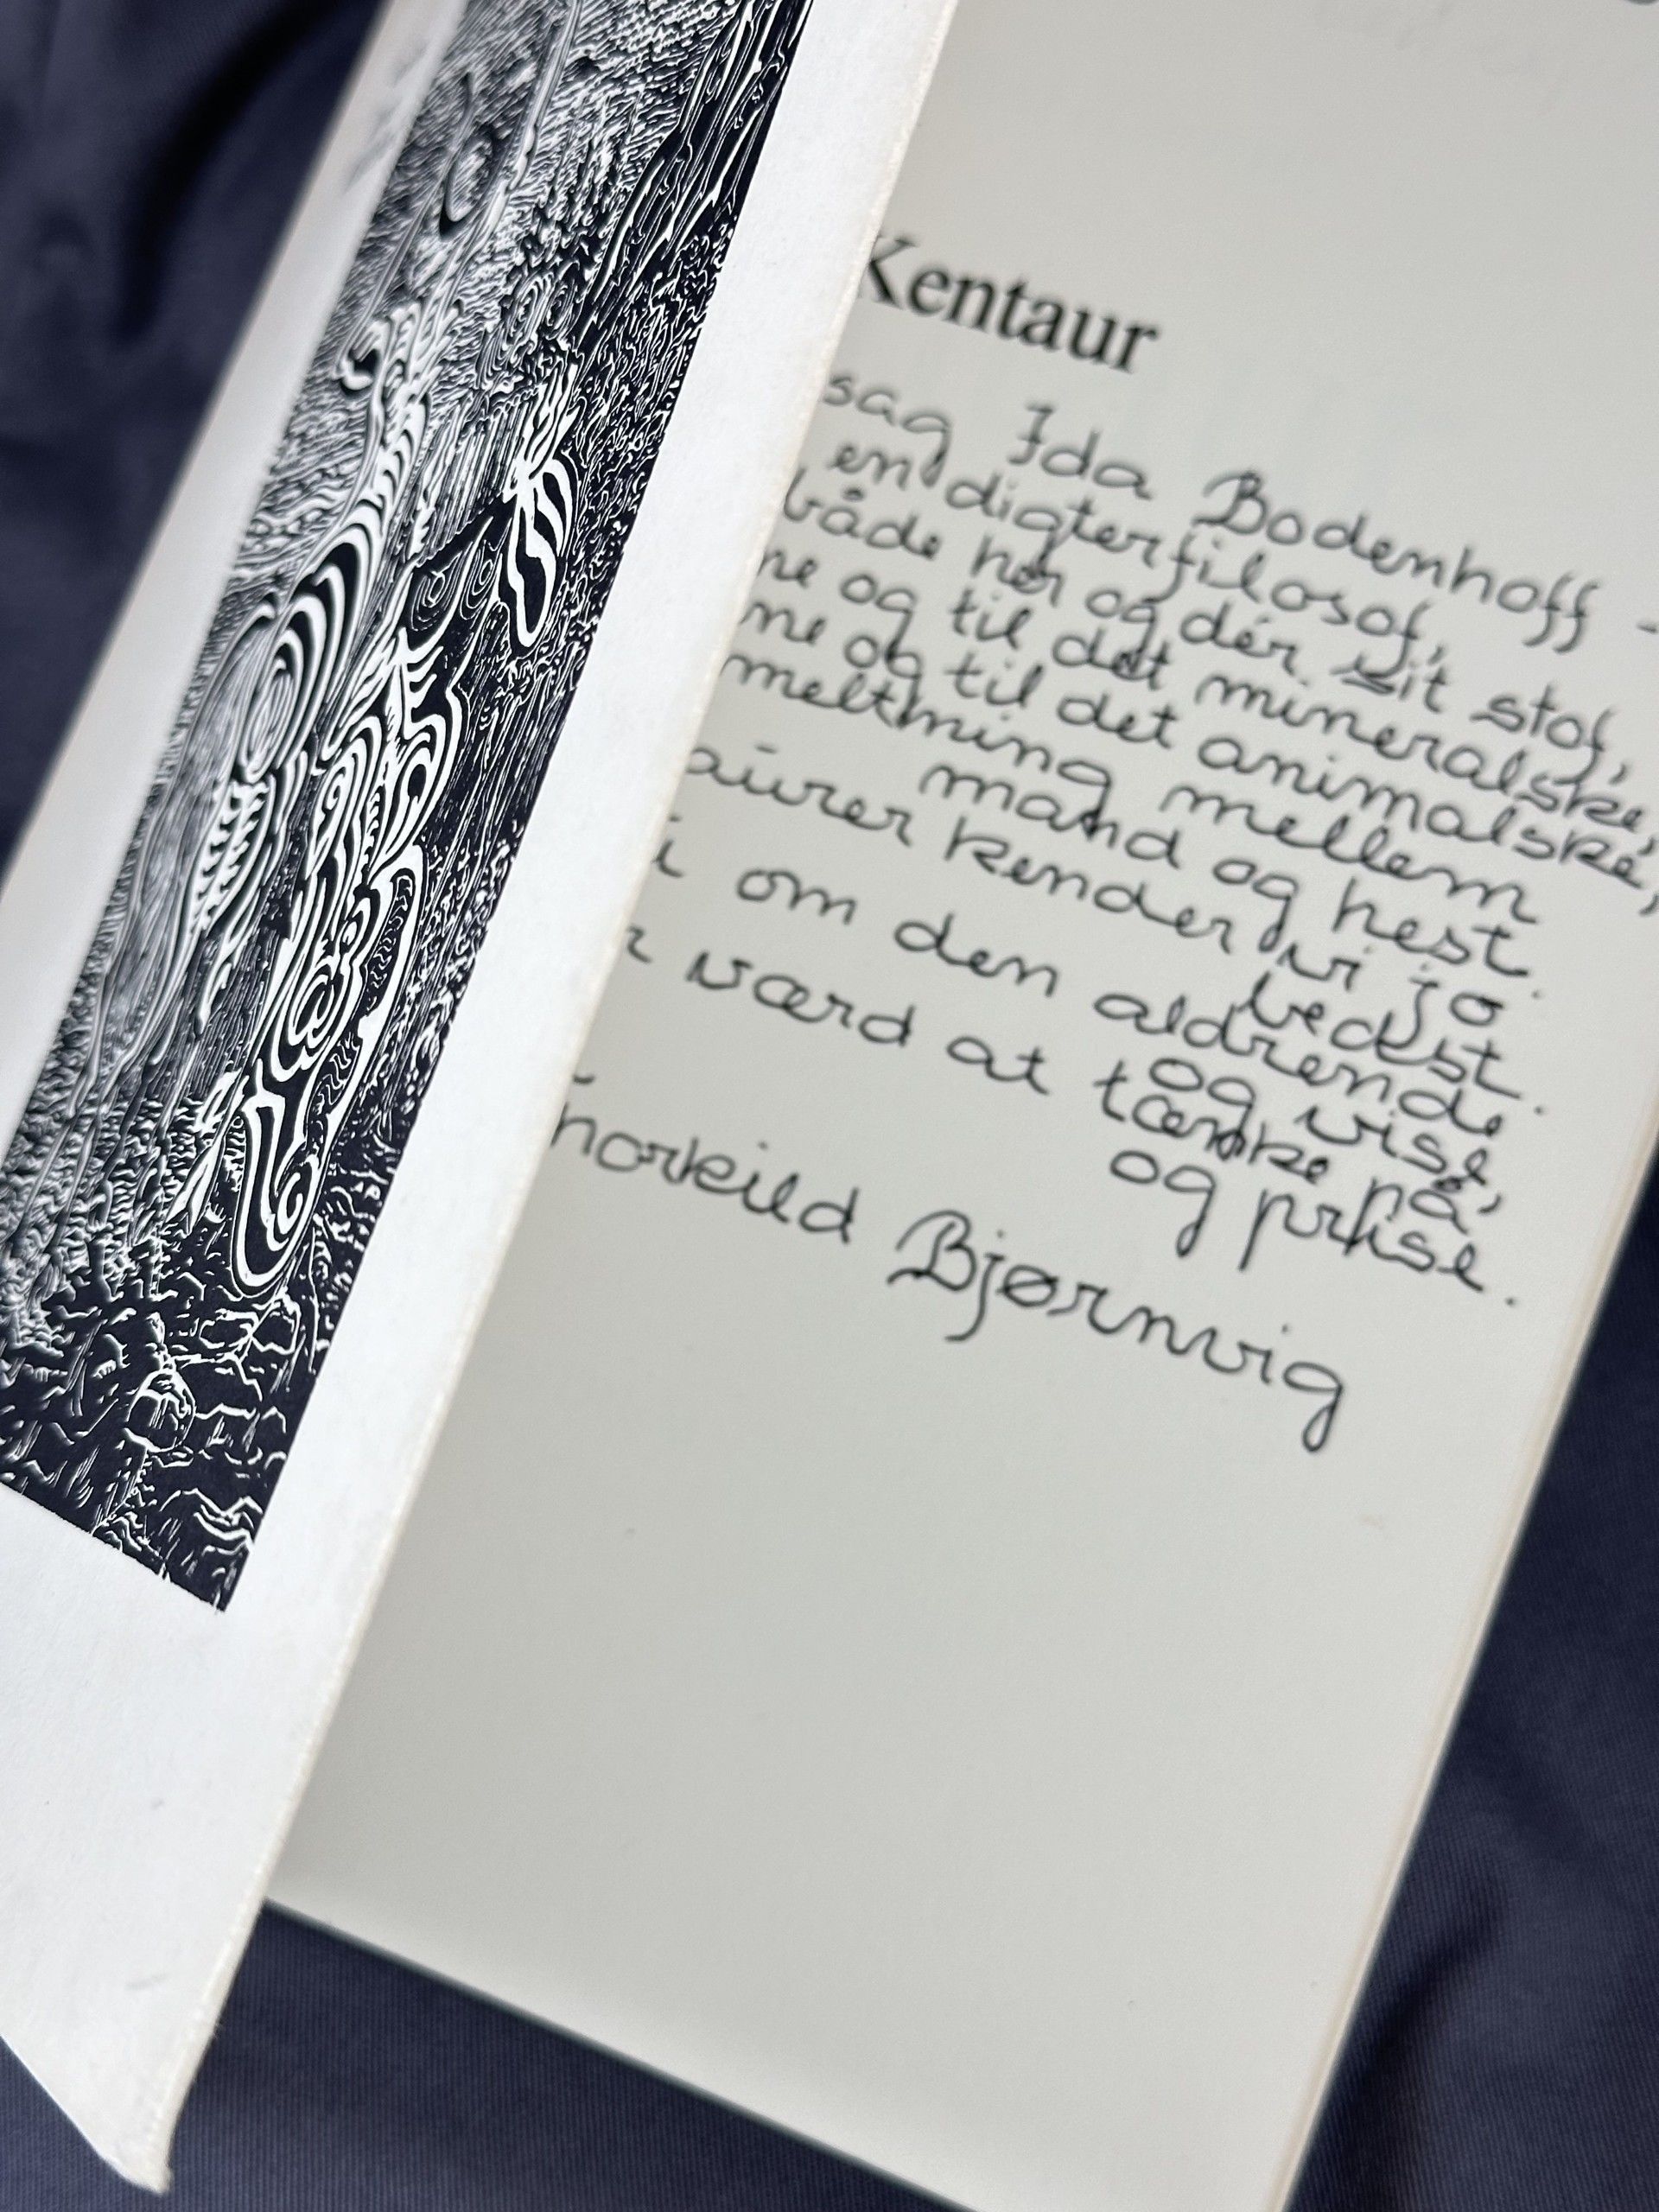 Kentaur
sag Ida Bodenhoff -
en digterfilosof,
både her og dér sit stof,
ne og til det mineralske,
ne og til det animalske,
meltning mellem
mand og hest.
aurer kender vi jo
bedst.
i om den aldrende
og vise,
r værd at tænke på,
og prise.
horkild Bjørnvig